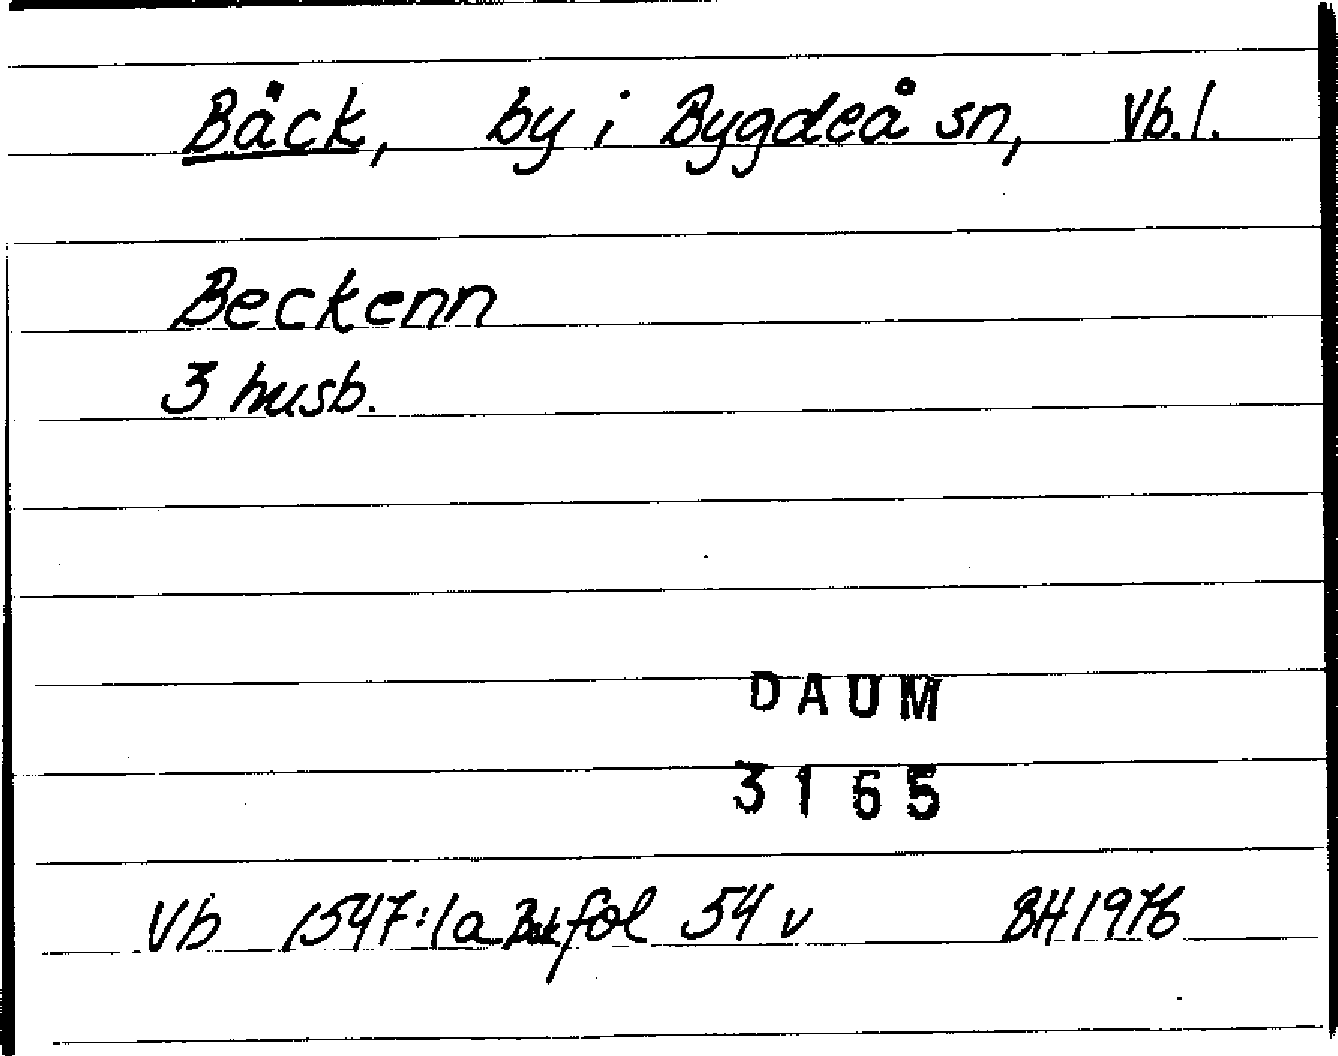 Bäck, by i Bygdeå sn, Vb.l.
Beckenn
3 husb.
DAUM
3165
Vb 1547:1a fol 54 v BH 1976